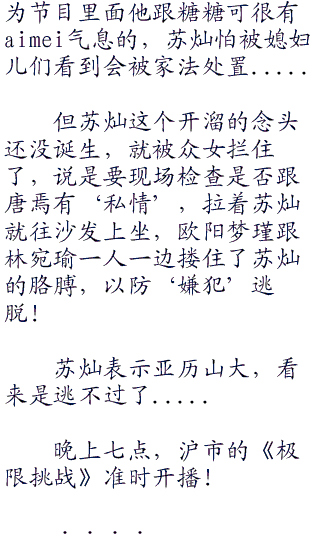 为节目里面他跟糖糖可很有
aimei气息的，苏灿怕被媳妇
儿们看到会被家法处置.....
但苏灿这个开溜的念头
还没诞生，就被众女拦住
了，说是要现场检查是否跟
唐焉有‘私情’，拉着苏灿
就往沙发上坐，欧阳梦瑾跟
林宛瑜一人一边搂住了苏灿
的胳膊，以防‘嫌犯’逃
脱！
苏灿表示亚历山大，看
来是逃不过了.....
晚上七点，沪市的《极
限挑战》准时开播！
．．．．